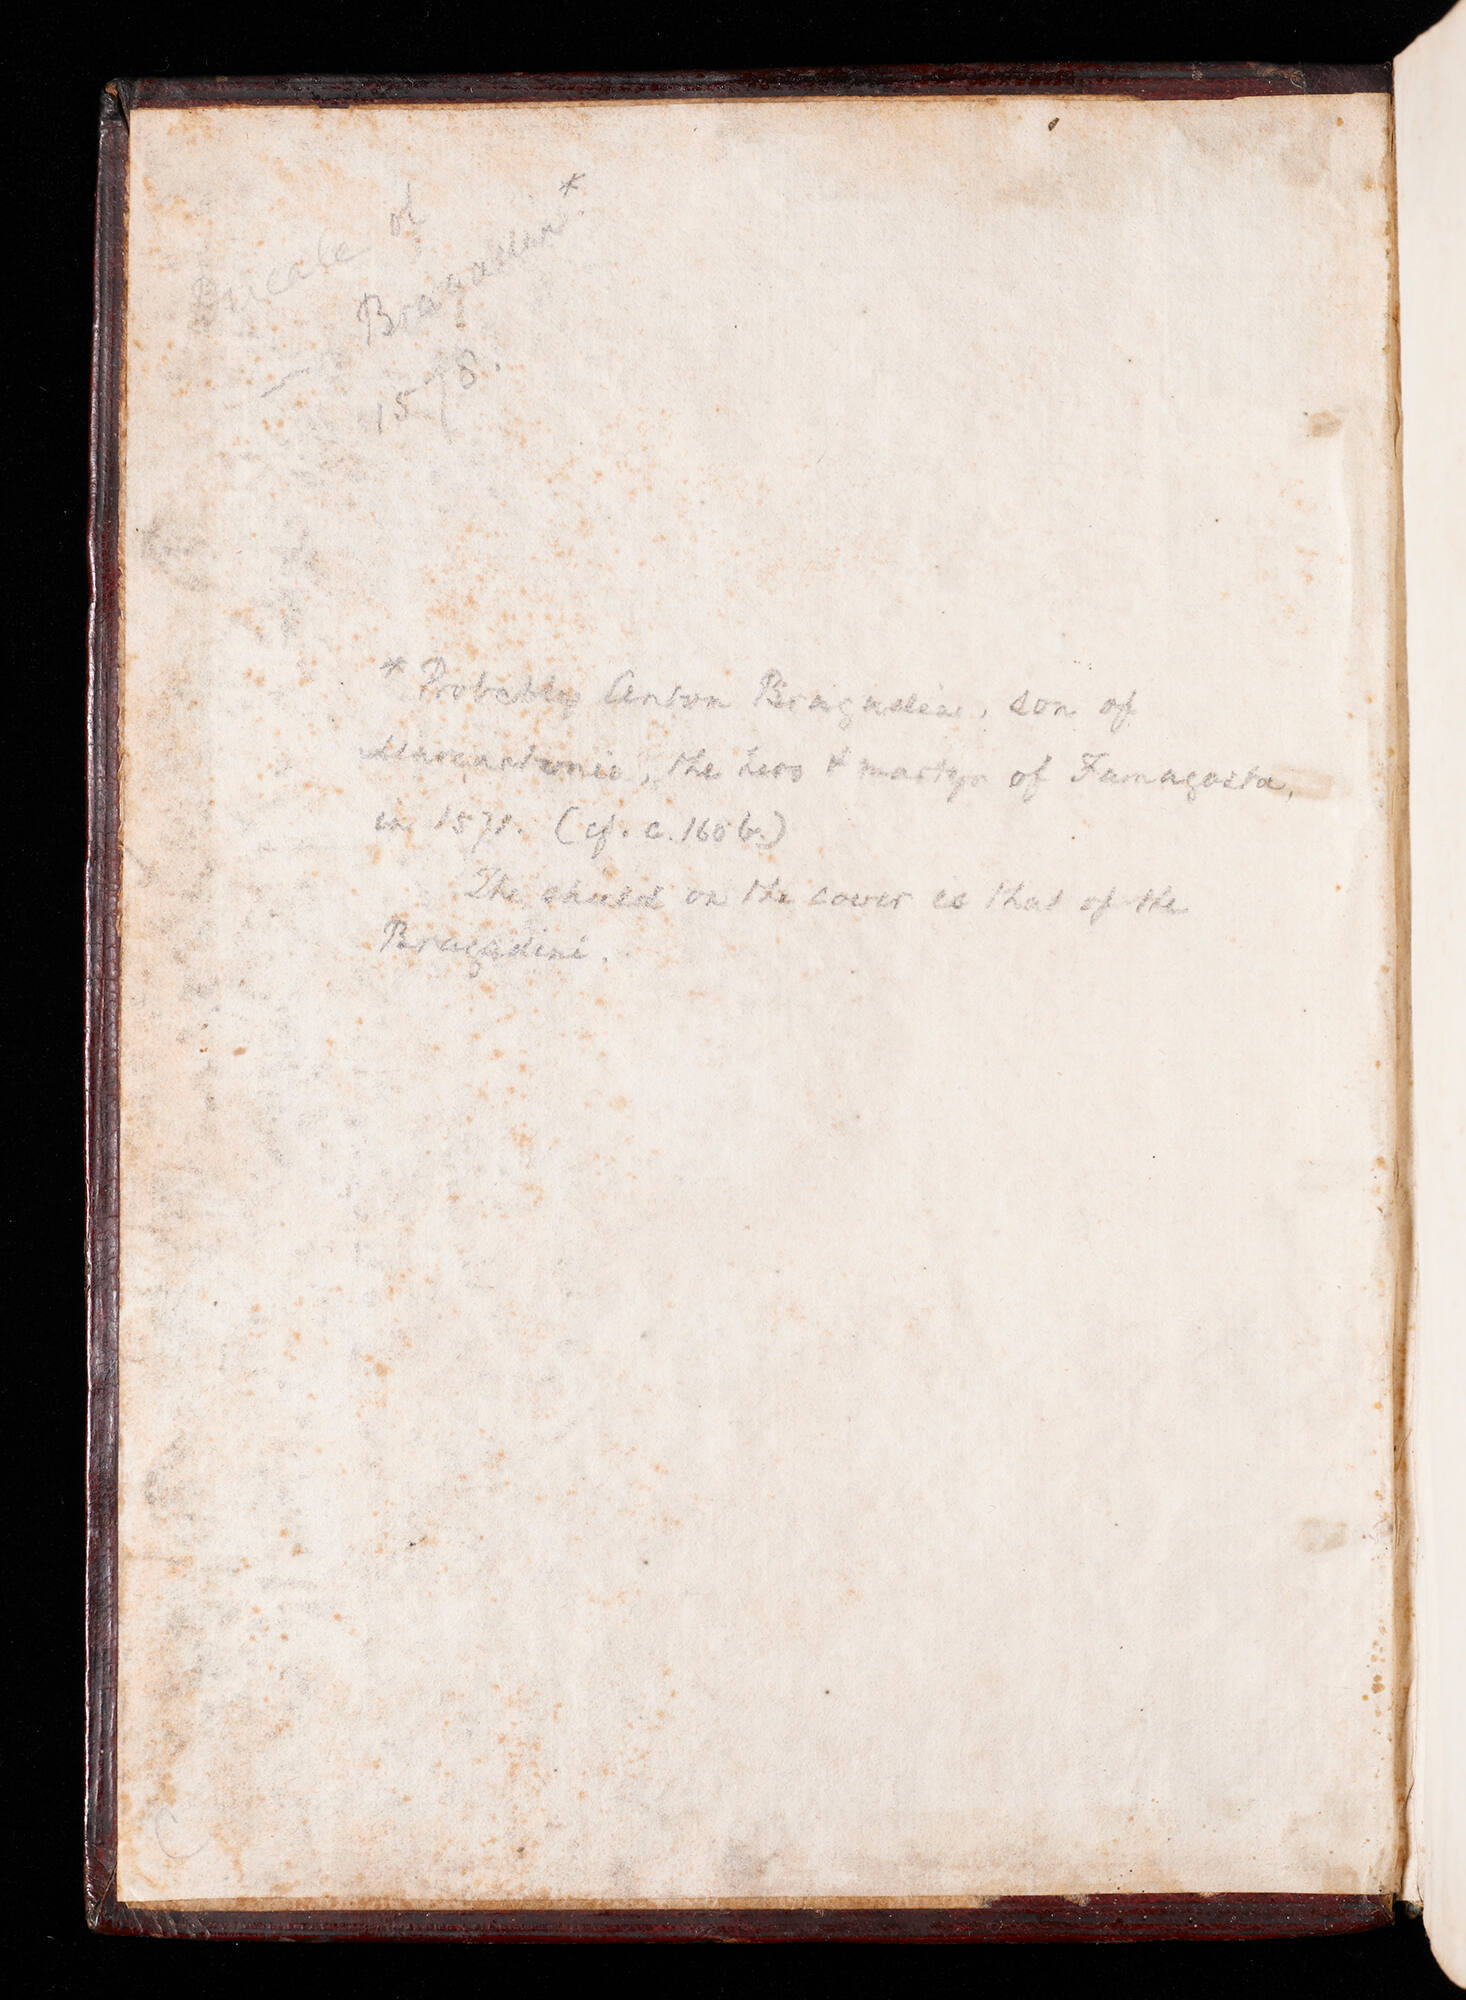 Ducale of
Bragadin*
1578.
* Probably Anton Bragadin, son of
Marcantonio, the hero & martyr of Famagosta,
in 1571. (cf. c. 160 b.)
The shield on the cover is that of the
Bragadini.
C